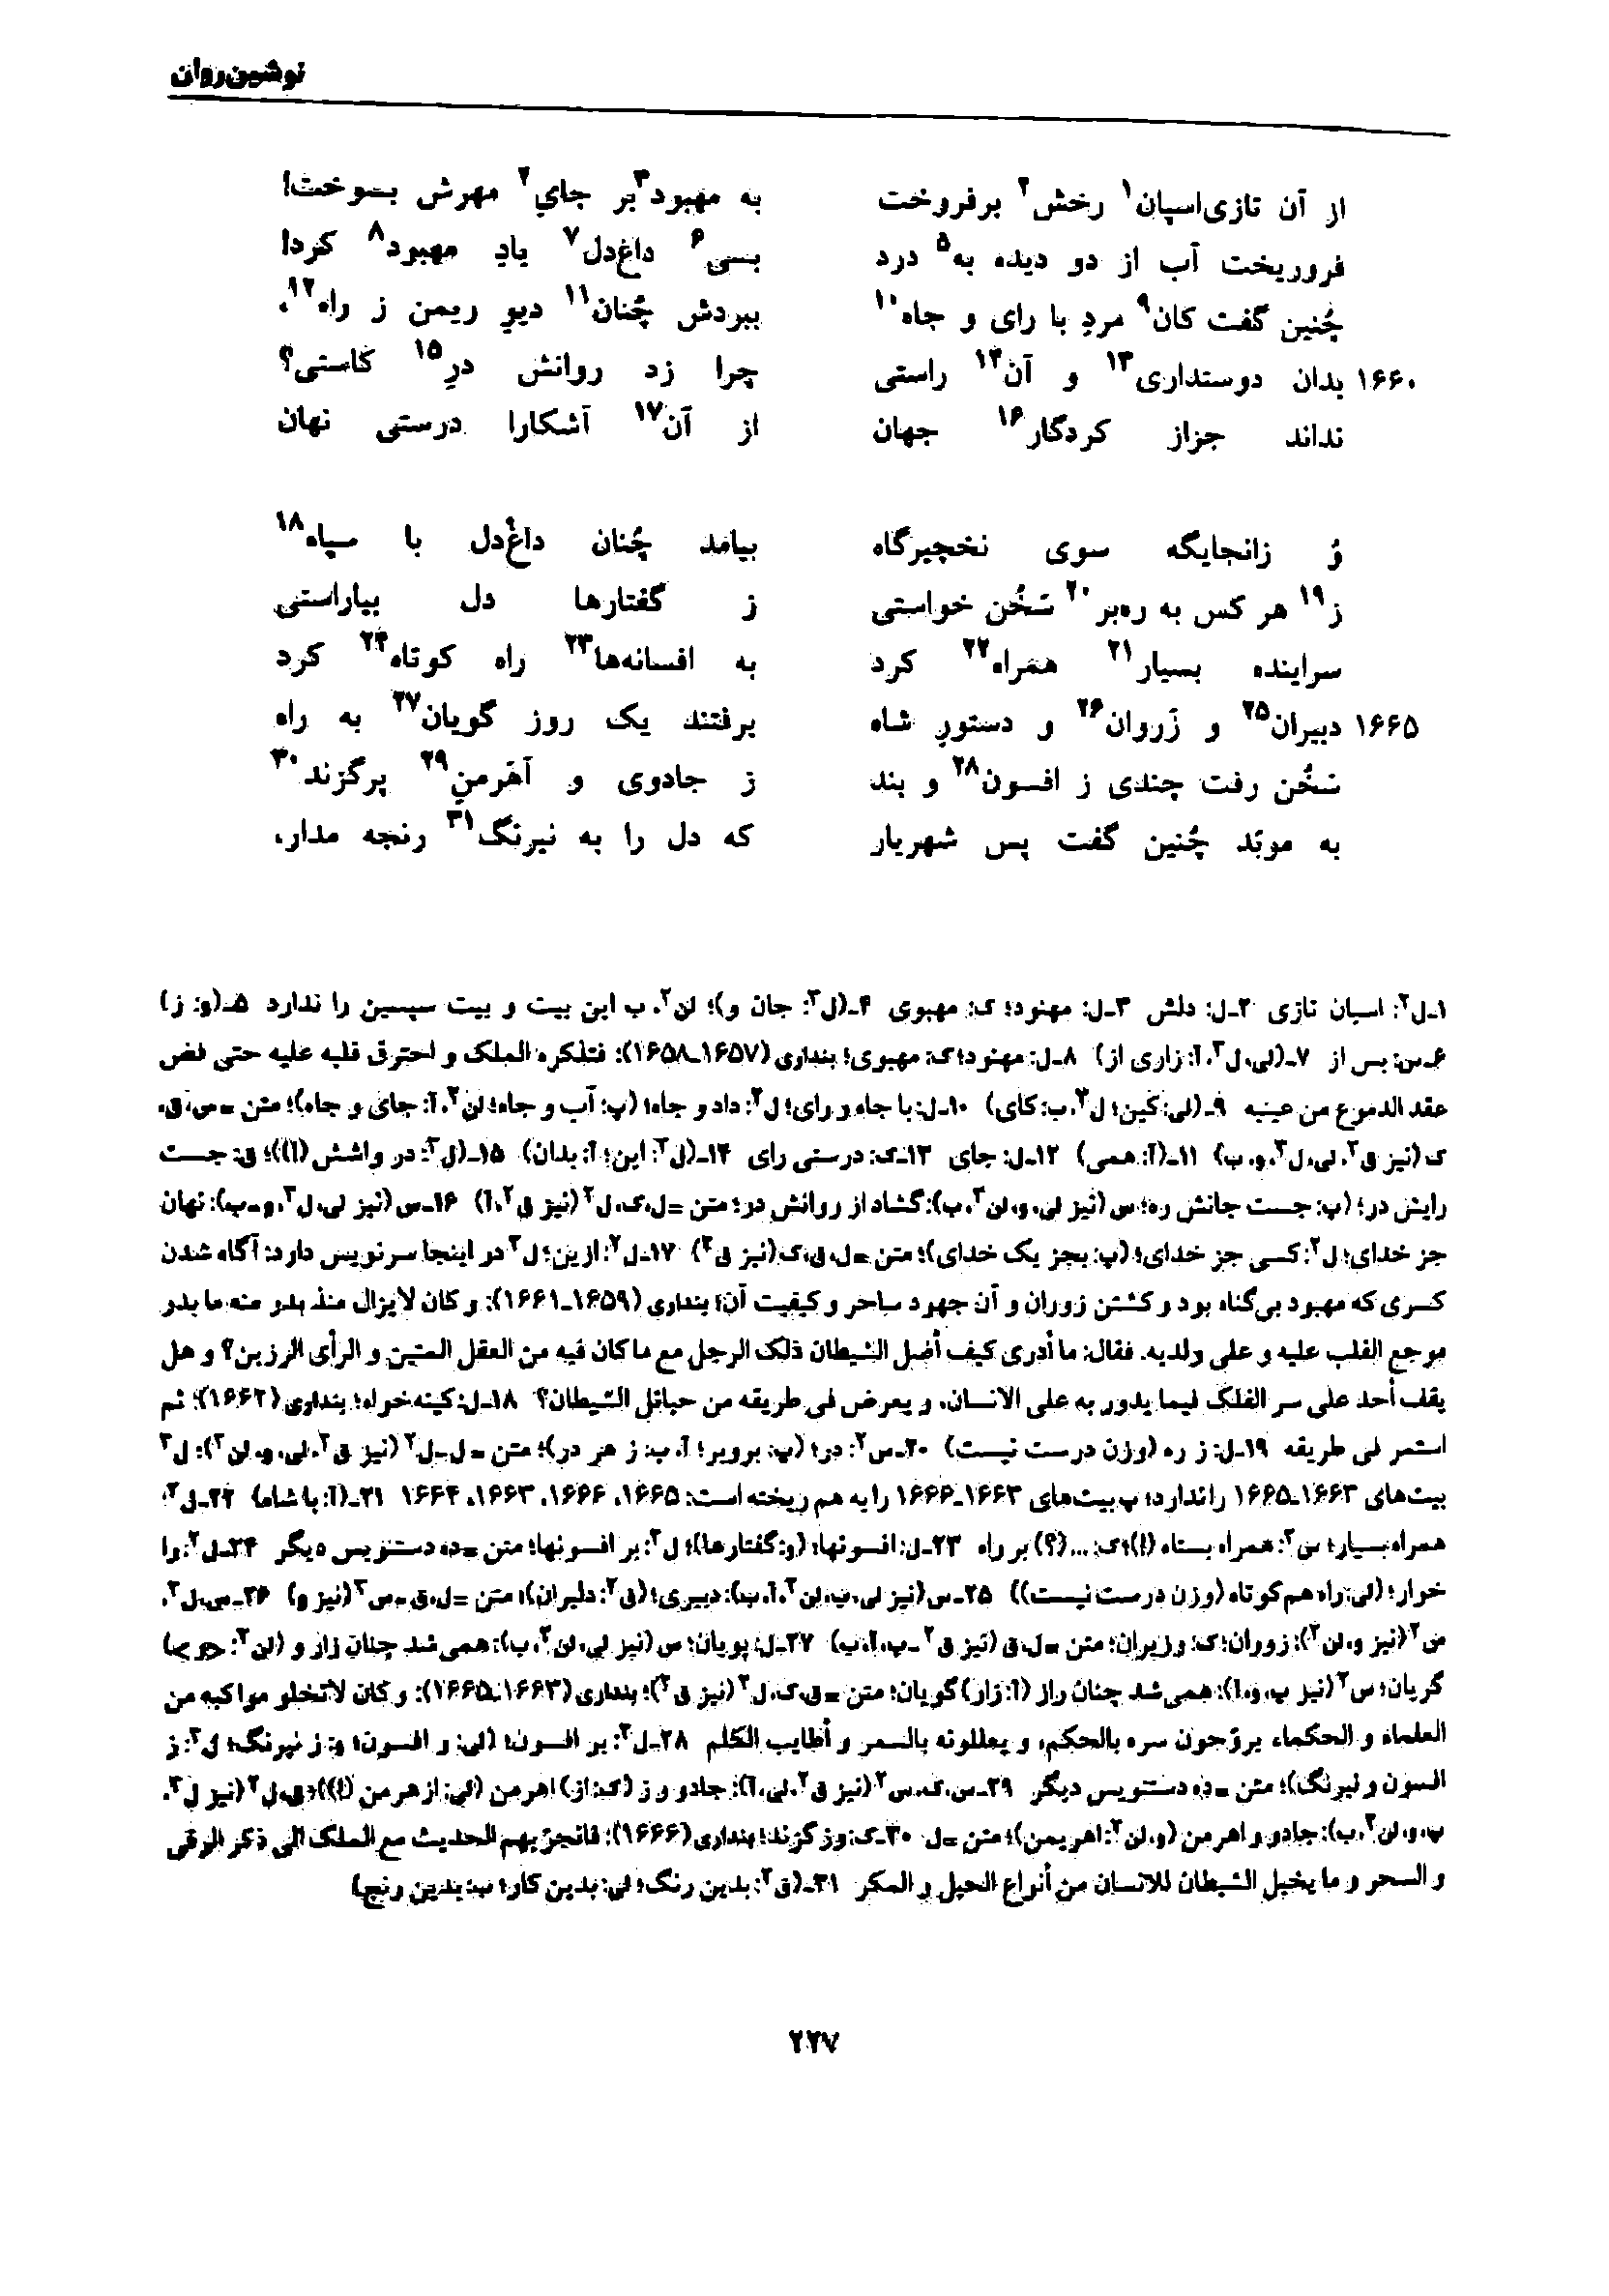 نوشین‌روان
از آن تازی‌اسپان۱ رخش۲ برفروخت به مهبود۳ بر جایِ۴ مهرش بسوخت!
فروریخت آب از دو دیده به۵ درد بسی۶ داغ‌دل۷ یادِ مهبود۸ کرد!
چُنین گفت کان۹ مردِ با رای و جاه۱۰ ببردش چُنان۱۱ دیوِ ریمن ز راه۱۲،
۱۶۶۰ بدان دوستداری۱۳ و آن۱۴ راستی چرا زد روانش درِ۱۵ کاستی؟
نداند جزاز کردگار۱۶ جهان از آن۱۷ آشکارا درستی نهان
وُ زانجایگه سوی نخچیرگاه بیامد چُنان داغْ‌دل با سپاه۱۸
ز۱۹ هر کس به ره‌بر۲۰ سَخُن خواستی ز گفتارها دل بیاراستی
سراینده بسیار۲۱ همراه۲۲ کرد به افسانه‌ها۲۳ راه کوتاه۲۴ کرد
۱۶۶۵ دبیران۲۵ و زَروان۲۶ و دستورِ شاه برفتند یک روز گویان۲۷ به راه
سَخُن رفت چندی ز افسون۲۸ و بند ز جادوی و آهَرمنِ۲۹ پرگزند۳۰
به موبَد چُنین گفت پس شهریار که دل را به نیرنگ۳۱ رنجه مدار،
۱ـ ل۲: اسپان تازی ۲ـ ل: دلش ۳ـ ل: مهنود؛ ک: مهبوی ۴ـ (ل۳: جان و)؛ لن۲، ب این بیت و بیت سپسین را ندارد ۵ـ (و: ز)
۶ـ س: پس از ۷ـ (لی، ل۳، آ: زاری از) ۸ـ ل: مهنود؛ ک: مهبوی؛ بنداری (۱۶۵۷ـ۱۶۵۸): فتذکره الملک و احترق قلبه علیه حتی فض
عقد الدموع من عینیه ۹ـ (لی: کین؛ ل۳، ب: کای) ۱۰ـ ل: با جاه و رای؛ ل۲: داد و جاه؛ (پ: آب و جاه؛ لن۲، آ: جای و جاه)؛ متن = س، ق،
ک (نیز ق۲، لی، ل۳، و، ب) ۱۱ـ (آ: همی) ۱۲ـ ل: جای ۱۳ـ ک: درستی رای ۱۴ـ (ل۳: این؛ آ: بدان) ۱۵ـ (ل۳: در واشش (!))؛ ق: جست
رایش در؛ (پ: جست جانش ره؛ س (نیز لی، و، لن۲، ب): گشاد از روانش در؛ متن = ل، ک، ل۲ (نیز ق۲، آ) ۱۶ـ س (نیز لی، ل۳، و ـ ب): نهان
جز خدای؛ ل۲: کسی جز خدای؛ (پ: بجز یک خدای)؛ متن = ل، ق، ک (نیز ق۲) ۱۷ـ ل۲: ازین؛ ل۳ در اینجا سرنویس دارد: آگاه شدن
کسری که مهبود بی‌گناه بود و کشتن زوران و آن جهود ساحر و کیفیت آن؛ بنداری (۱۶۵۹ـ۱۶۶۱): و کان لایزال منذ بدر منه ما بدر
موجع القلب علیه و علی ولدیه. فقال: ما أدری کیف أضل الشیطان ذلک الرجل مع ما کان فیه من العقل المتین و الرأی الرزین؟ و هل
یقف أحد علی سر الفلک فیما یدور به علی الانسان، و یعرض فی طریقه من حبائل الشیطان؟ ۱۸ـ ل: کینه‌خواه؛ بنداری (۱۶۶۲): ثم
استمر فی طریقه ۱۹ـ ل: ز ره (وزن درست نیست) ۲۰ـ س۲: در؛ (پ: برویر؛ آ، ب: ز هر در)؛ متن = ل ـ ل۲ (نیز ق۲، لی، و، لن۲)؛ ل۳
بیت‌های ۱۶۶۳ـ۱۶۶۵ را ندارد؛ پ بیت‌های ۱۶۶۳ـ۱۶۶۶ را به هم ریخته است: ۱۶۶۵، ۱۶۶۶، ۱۶۶۳، ۱۶۶۴ ۲۱ـ (آ: با شاه) ۲۲ـ ل۲:
همراه بسیار؛ س۲: همراه بستاه (!)؛ ک: ...(؟) بر راه ۲۳ـ ل: افسونها؛ (و: گفتارها)؛ ل۲: بر افسونها؛ متن = ده دستنویس دیگر ۲۴ـ ل۲: را
خوار؛ (لی: راه هم کوتاه (وزن درست نیست)) ۲۵ـ س (نیز لی، پ، لن۲، آ، ب): دبیری؛ (ق۲: دلیران)؛ متن = ل، ق ـ س۲ (نیز و) ۲۶ـ س، ل۲،
س۲ (نیز و، لن۲): زوران؛ ک: وزیران؛ متن = ل، ق (نیز ق۲ ـ پ، آ، ب) ۲۷ـ ل: پویان؛ س (نیز لی، لن۲، ب): همی شد چنان زار و (لن۲:
گریان؛ س۲ (نیز پ، و، آ): همی شد چنان راز (آ: زار) گویان؛ متن = ق، ک، ل۲ (نیز ق۲)؛ بنداری (۱۶۶۳ـ۱۶۶۵): و کان لاتخلو مواکبه من
العلماء و الحکماء یروّحون سره بالحکم، و یعللونه بالسمر و أطایب الکلم ۲۸ـ ل۲: بر افسون؛ (لی: و افسون؛ و: ز نیرنگ؛ ل۳: ز
افسون و نیرنگ)؛ متن = ده دستنویس دیگر ۲۹ـ س، ک، س۲ (نیز ق۲، لی، آ): جادو و ز (ک: از) اهرمن (لی: ازهرمن (!))؛ ق، ل۲ (نیز ل۳،
پ، و، لن۲، ب): جادو و اهرمن (و، لن۲: اهریمن)؛ متن = ل ۳۰ـ ک: وز گزند؛ بنداری (۱۶۶۶): فانجرّ بهم الحدیث مع الملک الی ذکر الرقی
و السحر و ما یخیل الشیطان للانسان من أنواع الحیل و المکر ۳۱ـ (ق۲: بدین رنگ؛ لی: بدین کار؛ ب: بدین رنج)
۲۲۷